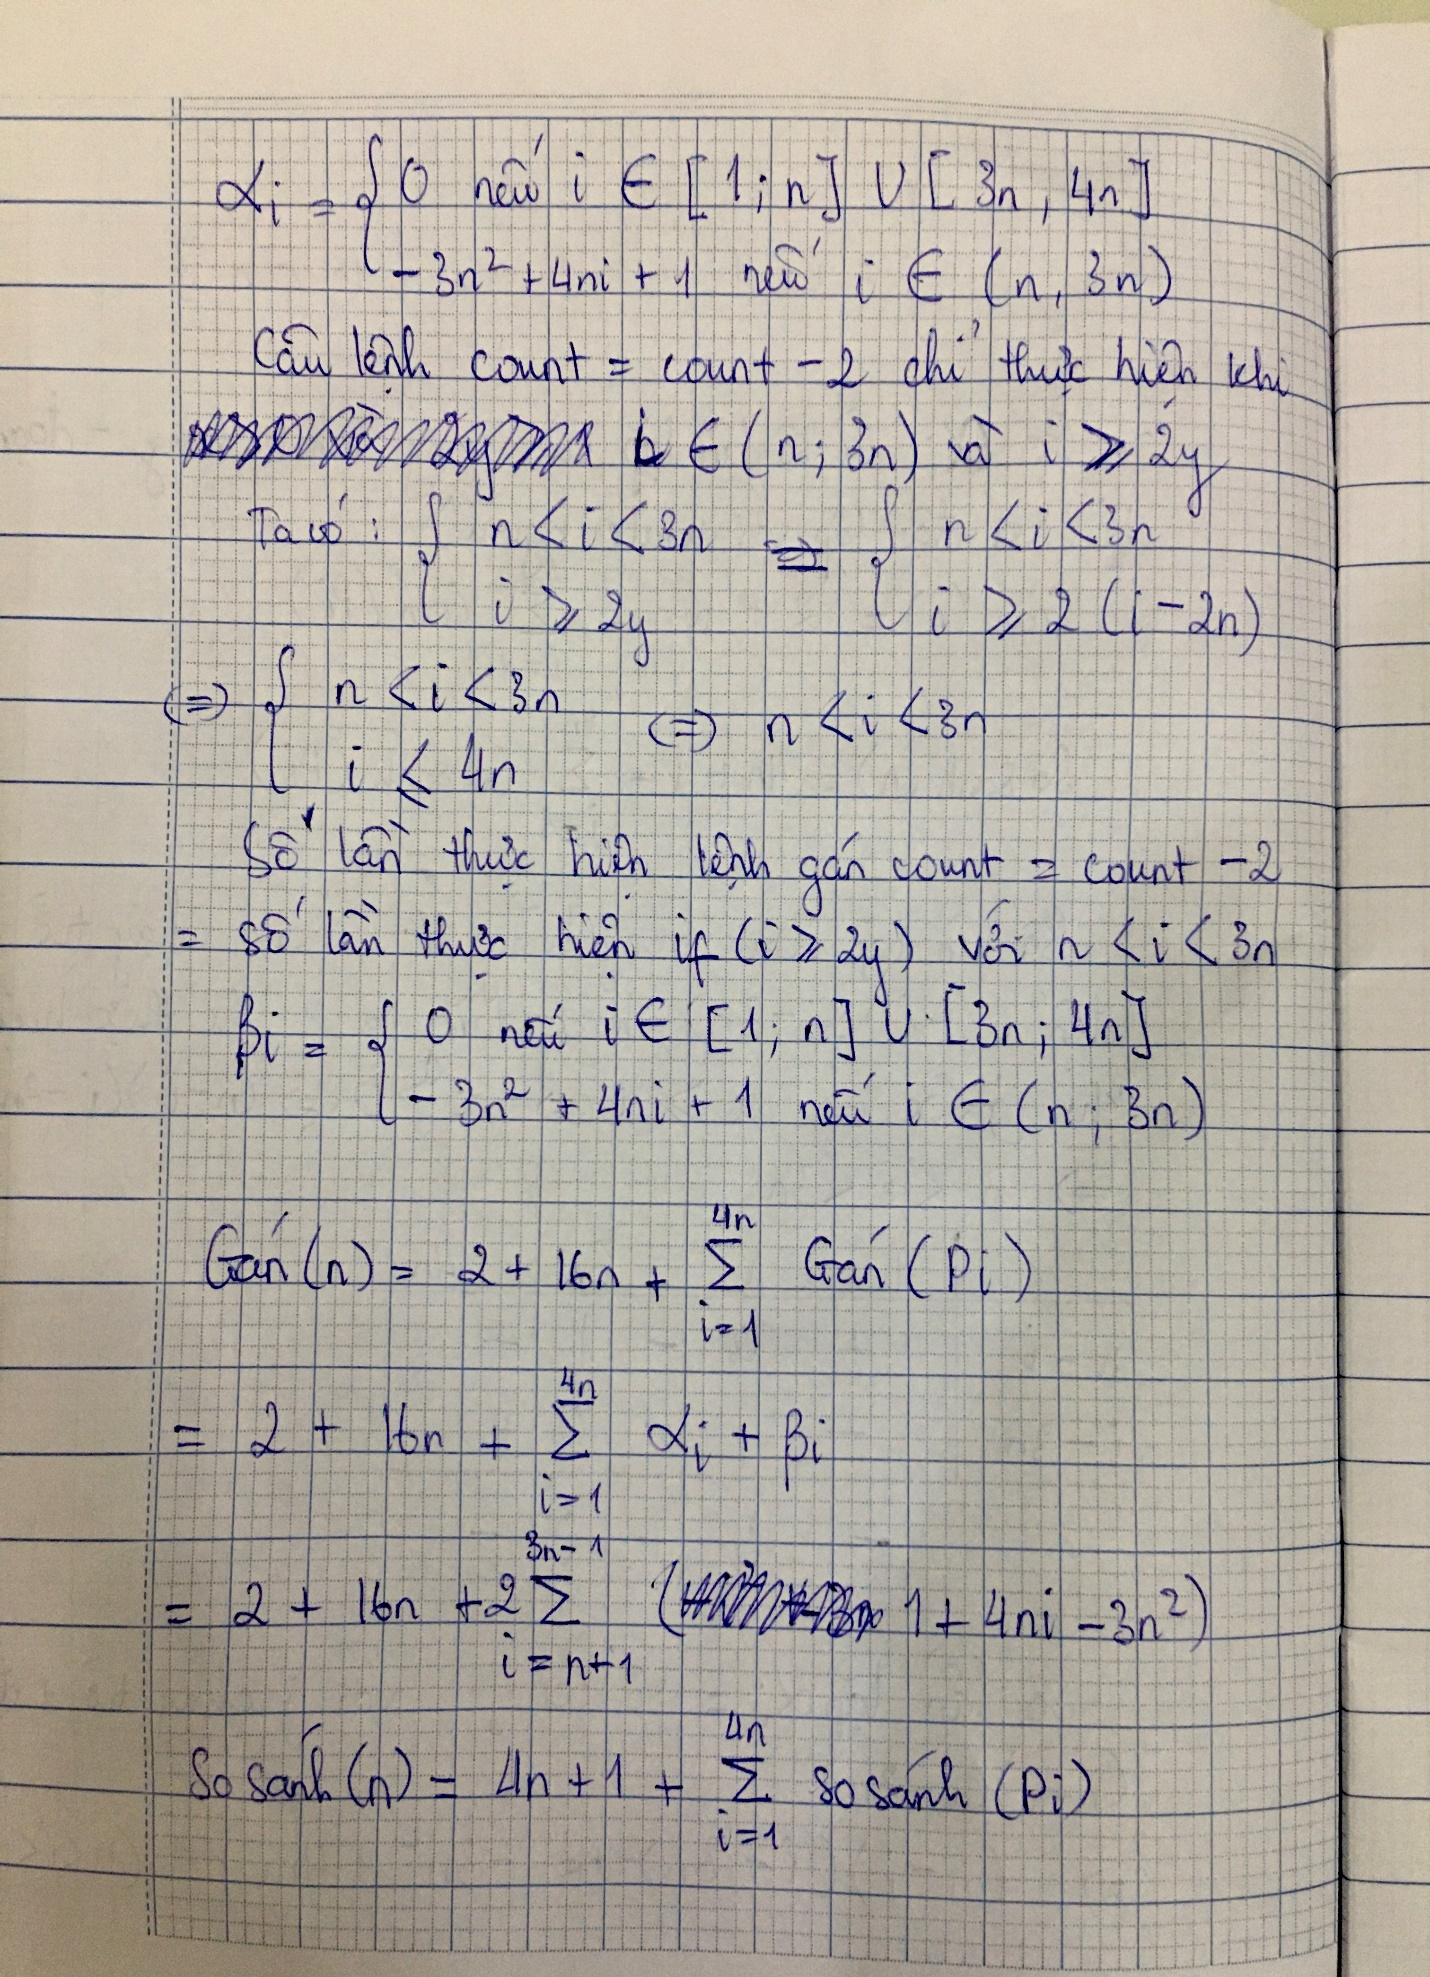 αi = { 0 nếu i ∈ [1; n] ∪ [3n, 4n]
-3n² + 4ni + 1 nếu i ∈ (n, 3n)
Câu lệnh count = count - 2 chỉ thực hiện khi
i ∈ (n; 3n) và i ≥ 2y
Ta có: { n < i < 3n ⇒ { n < i < 3n
i ≥ 2y i ≥ 2(i - 2n)
⇔ { n < i < 3n ⇔ n < i < 3n
i ≤ 4n
Số lần thực hiện lệnh gán count = count - 2
= số lần thực hiện if (i ≥ 2y) với n < i < 3n
βi = { 0 nếu i ∈ [1; n] ∪ [3n; 4n]
-3n² + 4ni + 1 nếu i ∈ (n; 3n)
Gán(n) = 2 + 16n + ∑_{i=1}^{4n} Gán(Pi)
= 2 + 16n + ∑_{i=1}^{4n} αi + βi
= 2 + 16n + 2 ∑_{i=n+1}^{3n-1} (1 + 4ni - 3n²)
So sánh(n) = 4n + 1 + ∑_{i=1}^{4n} so sánh (Pi)